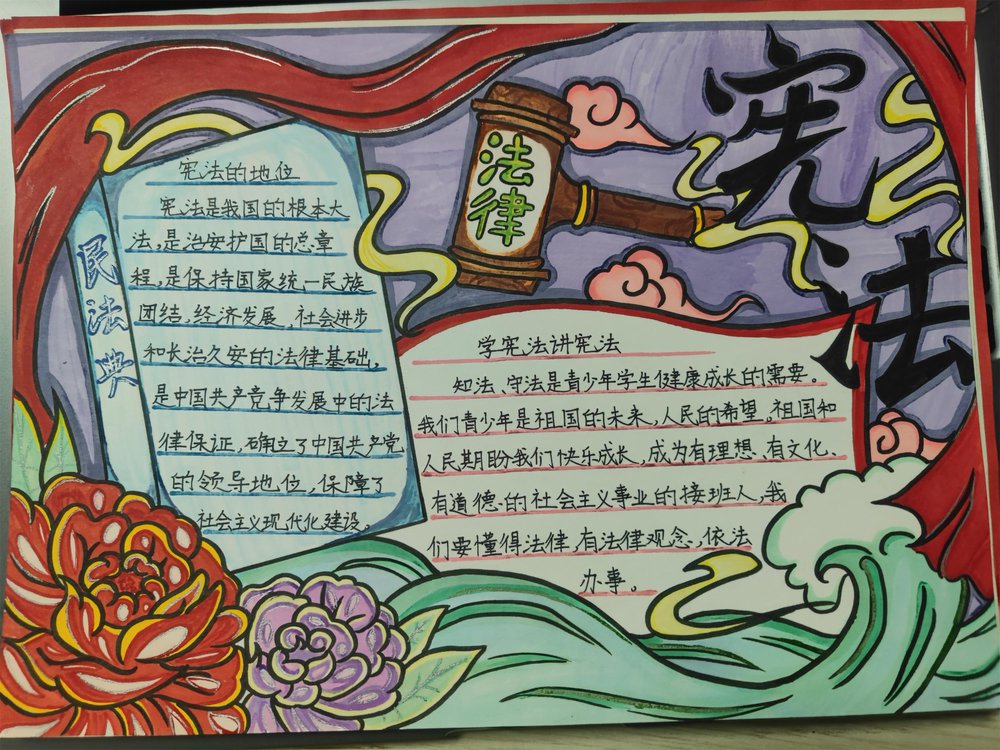 宪法
法律
民法典
宪法的地位
宪法是我国的根本大
法,是治安护国的总章
程,是保持国家统一民族
团结,经济发展,社会进步
和长治久安的法律基础,
是中国共产党争发展中的法
律保证,确立了中国共产党
的领导地位,保障了
社会主义现代化建设。
学宪法讲宪法
知法、守法是青少年学生健康成长的需要。
我们青少年是祖国的未来,人民的希望。祖国和
人民期盼我们快乐成长,成为有理想、有文化、
有道德的社会主义事业的接班人,我
们要懂得法律,有法律观念,依法
办事。